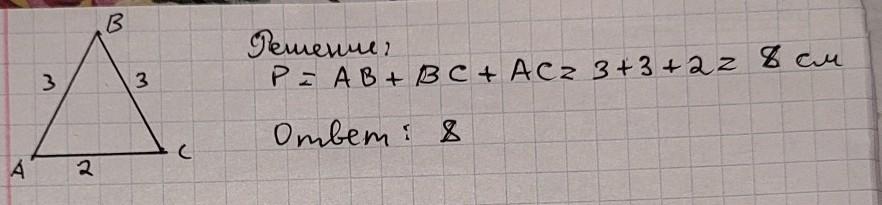 B
3
3
A
2
C
Решение:
P = AB + BC + AC = 3+3+2 = 8 см
Ответ: 8